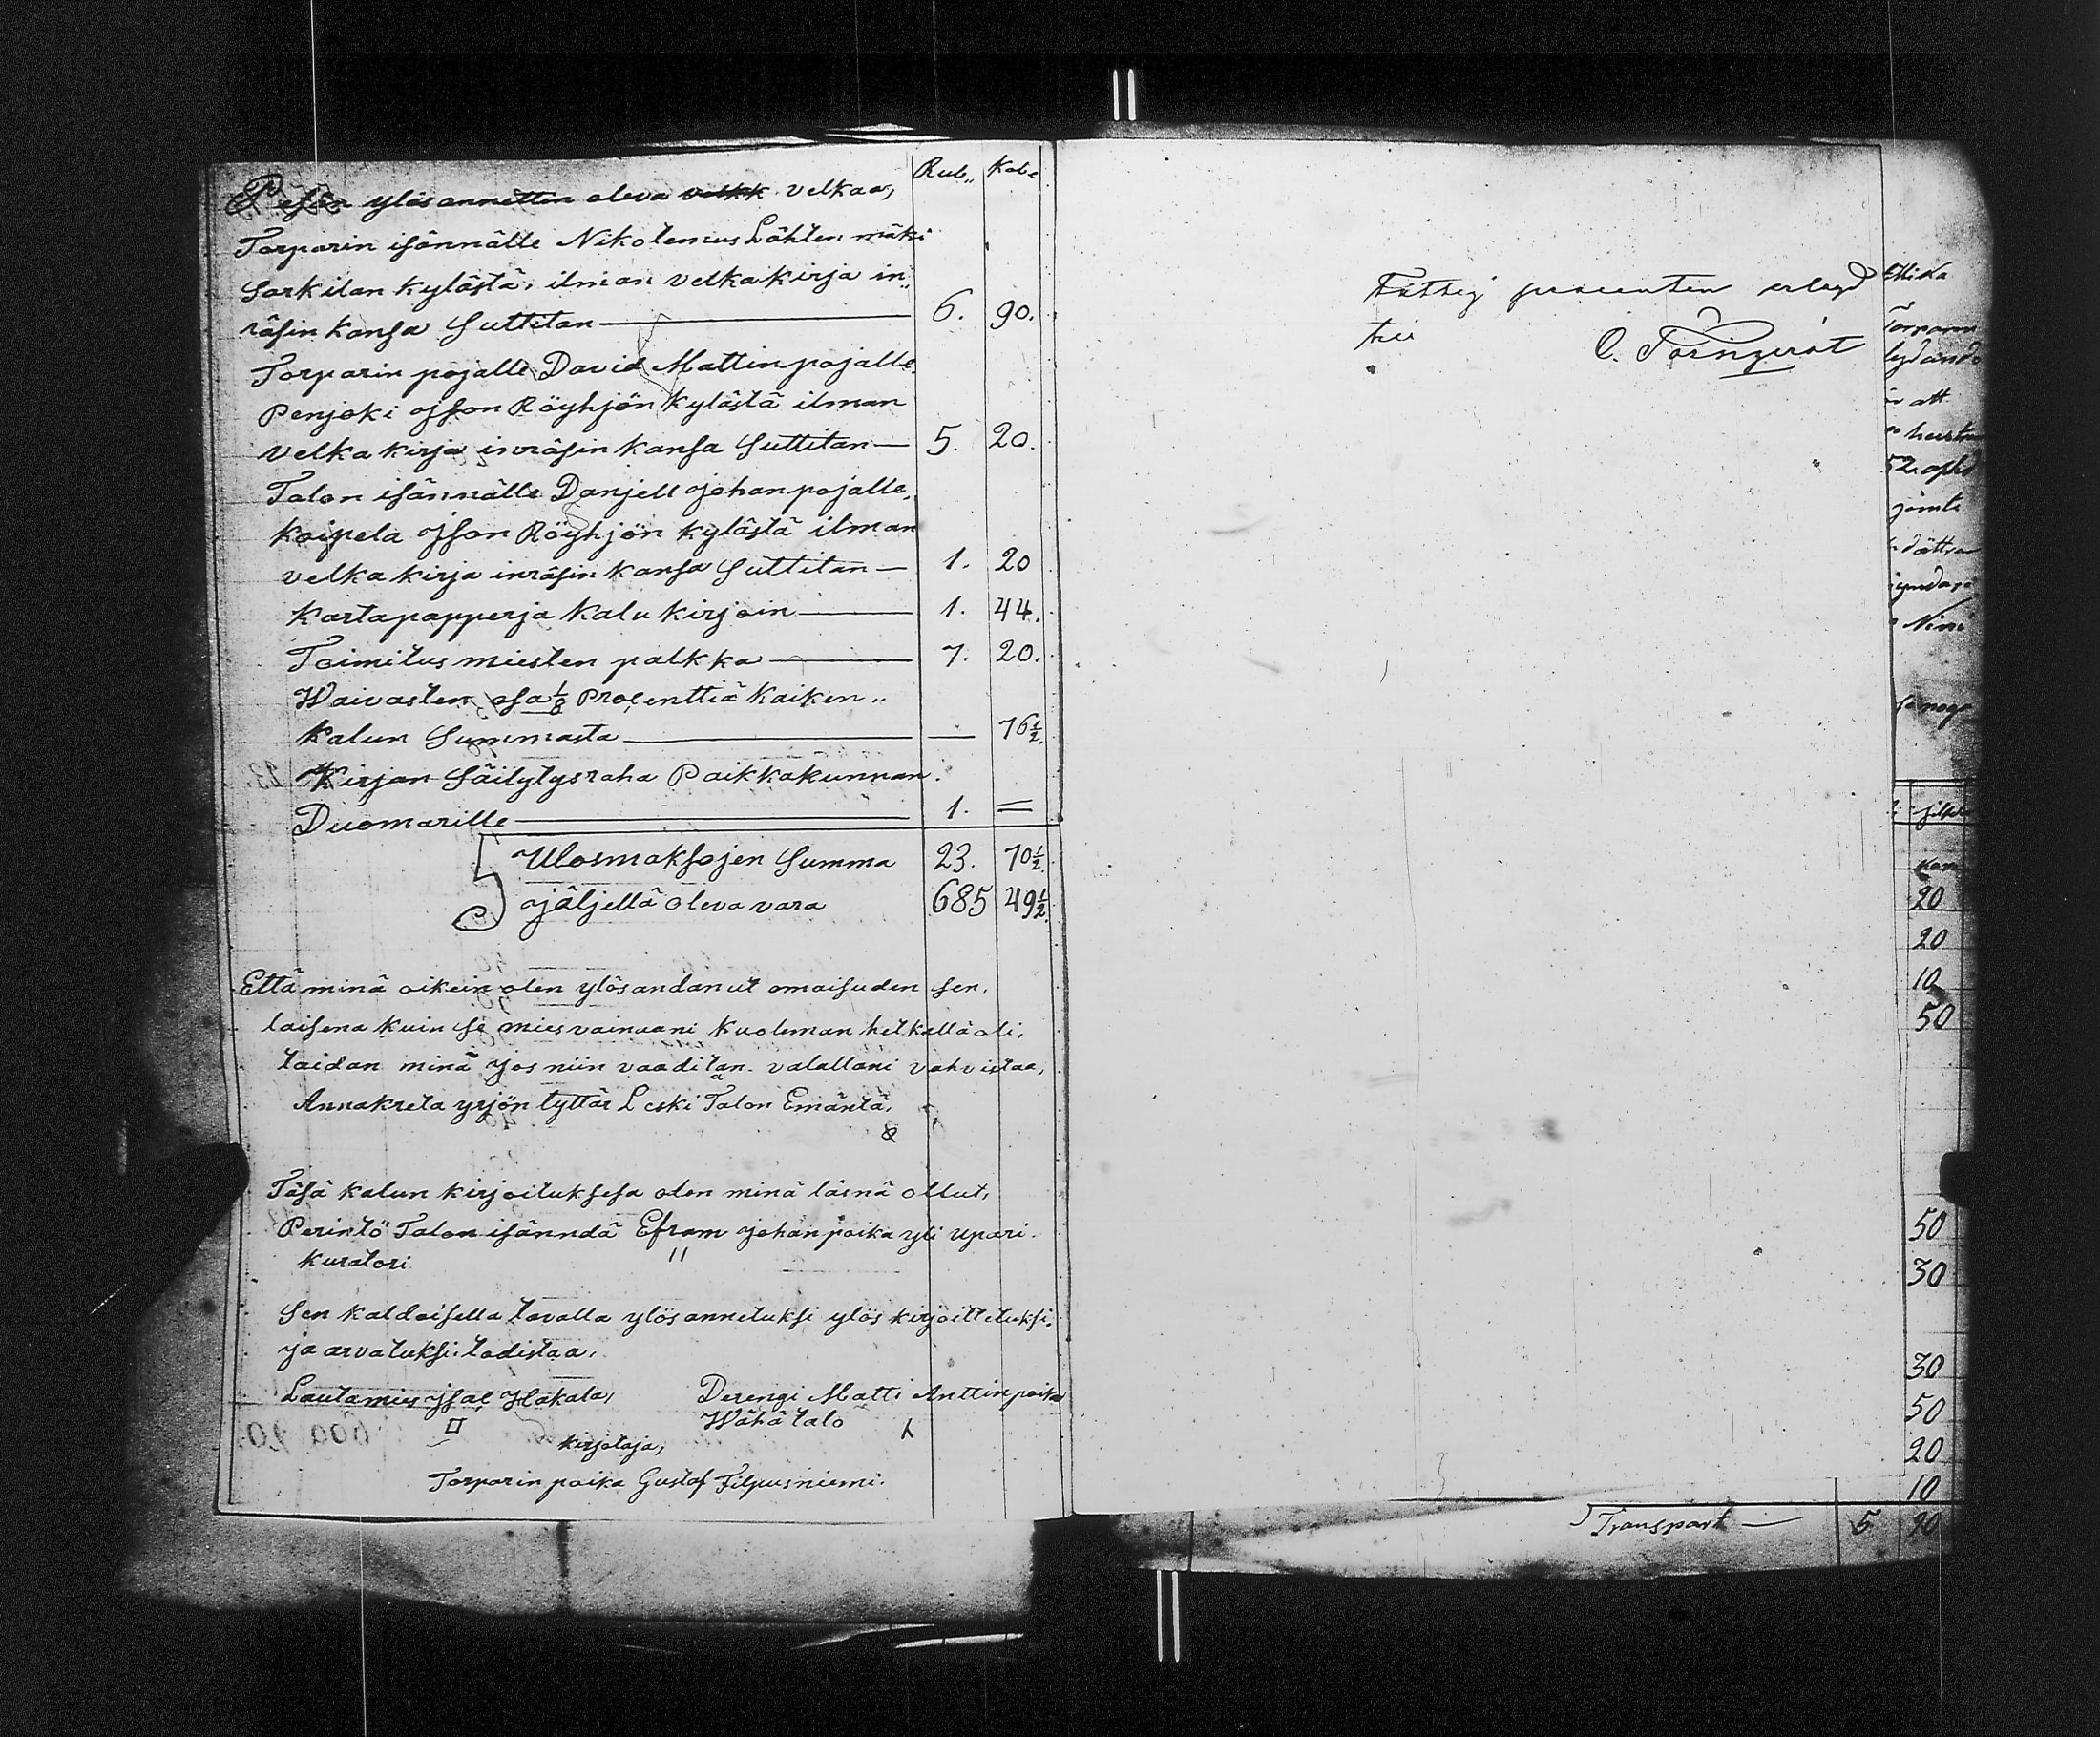 Rub,, Kob.
Pesän ylösannettin oleva velkk velkaa,
Torparin isännälle Nikolemus Lähten mäki
Sarkilan kylästä, ilman velkakirja in,,
räsin kansa Suttitan — 6. 90.
Torparin pojalle David Mattinpojalle.
Penjoki ison Röyhjön kylästä ilman
velka kirja inräsin kansa Suttitan — 5. 20.
Talon isännälle Danjell Johanpojalle,
Koipela ison Röyhjön kylästä ilman
velka kirja inräsin kansa Suttitan — 1. 20
Kartapapperja Kalu kirjoin — 1. 44.
Toimitus miesten palkka — 7. 20.
Waivasten osa 1/8 Procenttiä Kaiken,,
Kalun Summasta — — 76 1/2.
Kirjan Säilytysraha Paikkakunnan.
Duomarille — 1. =
Ulosmaksojen Summa 23. 70 1/2.
jäljellä oleva vara 685 49 1/2.
Että minä oikein olen ylösandanut omaisuden sen.
laisena kuin se miesvainaani kuoleman hetkellä oli,
taidan minä jos niin vaaditan. valallani vahvistaa,
Annakreta yrjön tyttär Leski Talon Emäntä,
Täsä kalun kirjoituksesa olen minä läsnä ollut,
Perintö Talon isänndä Efram Johanpoika yli Upari.
Kuratori
Sen kaldaisella tavalla ylösannetuksi ylös kirjoittetuksi.
ja arvatuksi: todistaa,
Lautamies Isac Hakala, Derengi Matti Anttinpoika
Wähä talo
kirjotaja,
Torparin poika Gustaf Filpusniemi.
Fattig procenten erlagd
C. Törnqvist
Torparn
att
52.
20
20
10
50
50
30
30
50
20
10
Transport — 5 90